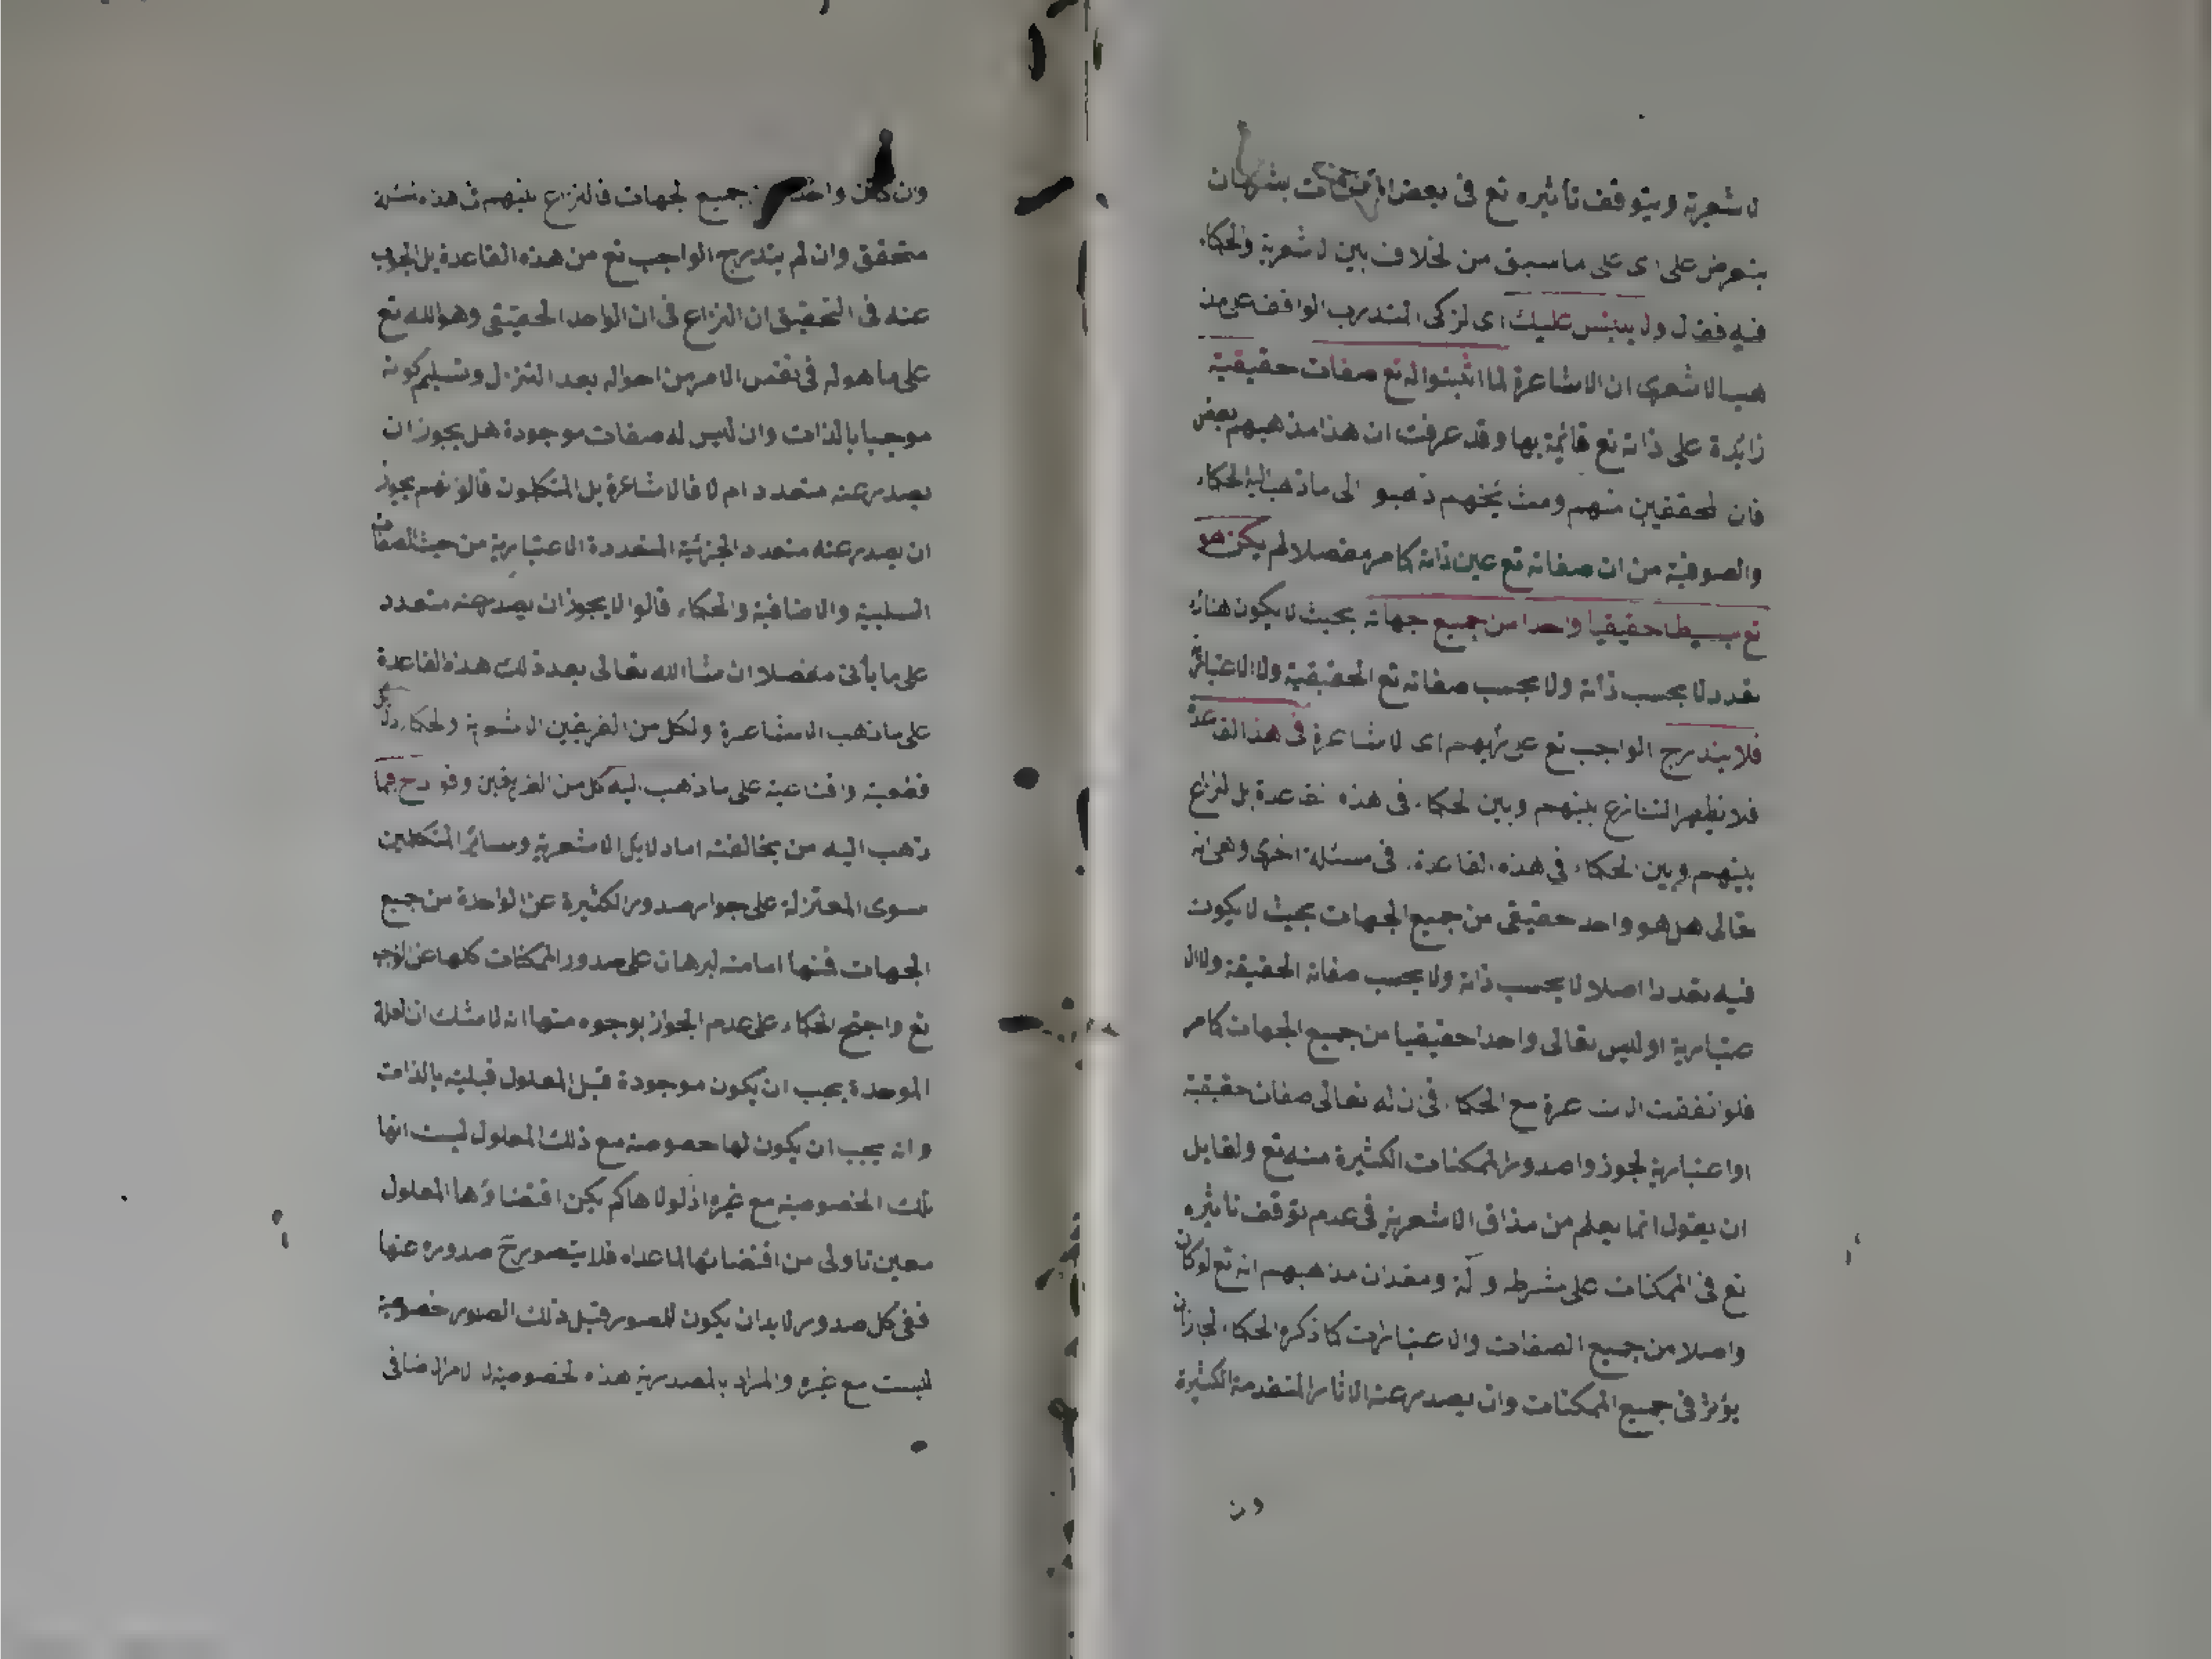 لاشعرية ويتوقف تأثيره تع فى بعض الممكنات بشرهان
يتعرض على اى على ما سبق من لخلاف بين لاشعرية والحكاء
فيه فقال ولا يلتبس عليك اى لزكى المتدرب الواقف على مذ
هب الاشعرى ان الاشاعرة لما اثبتوا له تع صفات حقيقية
زائدة على ذاته تع قائمة بها وقد عرفت ان هذا مذهبهم بعض
فان لمحققين منهم ومشايخهم ذهبو الى ما ذهب اليه الحكاء
والصوفية من ان صفاته تع عين ذاته كامر مفصلا لم يكن هو
تع بسيطا حقيقيا واحدا من جميع جهاته بحيث لا يكون هناك
تعدد لا بحسب ذاته ولا بحسب صفاته تع الحقيقية ولا الاعتبارية
فلا يندرج الواجب تع على رأيهم اى لاشاعرة فى هذا القاعدة
فلا يظهر التنازع بينهم وبين لحكاء فى هذه لقاعدة بل لنزاع
بينهم وبين الحكاء فى هذه لقاعدة. فى مسئلة اخرى وهى انه
تعالى هل هو واحد حقيقى من جميع الجهات بحيث لا يكون
فيه تعدد اصلا لا بحسب ذاته ولا بحسب صفاته الحقيقة ولا الا
عتبارية او ليس تعالى واحدا حقيقيا من جميع الجهات كامر
فلو اتفقت الاشاعرة مع الحكاء فى ان له تعالى صفات حقيقية
او اعتبارية لجوزوا صدور الممكنات الكثيرة منه تع ولقايل
ان يقول انما يعلم من مذاق الاشعرية فى عدم توقف تأثيره
تع فى الممكنات على شرط وآلة ومقدان مذهبهم انه تع لو كان
واصلا من جميع الصفات والاعتبارات كما ذكره الحكاء لجاز ان
يؤثر فى جميع الممكنات وان يصدر عنه الاثار المتقدمة الكثيرة
وان
وان كان واحدا جميع لجهات فالنزاع بينهم فى هذه مسئلة
متحقق وان لم يندرج الواجب تع من هذه القاعدة بل الجواب
عنه فى التحقيق ان النزاع فى ان الواحد الحقيقى وهو الله تع
على ما هو له فى نفس الامر من احواله بعد التنزل وتسليم كونه
موجبا بالذات وان ليس له صفات موجودة هل يجوز ان
يصدر عنه متعدد ام لا فالاشاعرة بل المتكلمون قالو نعم يجوز
ان يصدر عنه متعدد الجزئية المتعددة الاعتبارية من حيث الصفات
السلبية والاضافية والحكاء قالوا لا يجوز ان يصدر عنه متعدد
على ما يأتى مفصلا ان شاالله تعالى بعد ذلك هذه القاعدة
على ما ذهب الاشاعرة ولكل من الفريقين الاشعرية ولحكاء دلائل
قطعية واقناعية على ما ذهب ليه كل من الفريقين وقوادح فيما
ذهب اليه من يخالفنه اما دلايل الاشعرية وسائر المتكلمين
سوى المعتزلة على جواز صدور الكثيرة عن الواحدة من جميع
الجهات فمنها اما منه لبرهان على صدور الممكنات كلها عن الواجب
تع واحتج الحكاء على عدم الجواز بوجوه منها انه لا شك ان لعلة
الموحدة يجب ان يكون موجودة قبل المعلول قبلية بالذات
وانه يجب ان يكون لها حصوصية مع ذلك المعلول ليست انها
تلك الخصوصية مع غيره اذ لولاها كم يكن اقتضاؤها المعلول
معين تا ولى من اقتضائها لما عداه فلا يتصور ح صدوره عنها
ففى كل صدور لا بد ان يكون للمصدر قبل ذلك الصدور خصوصية
ليست مع غيره والمراد بالمصدرية هذه لخصوصية لا لامر الاضافى